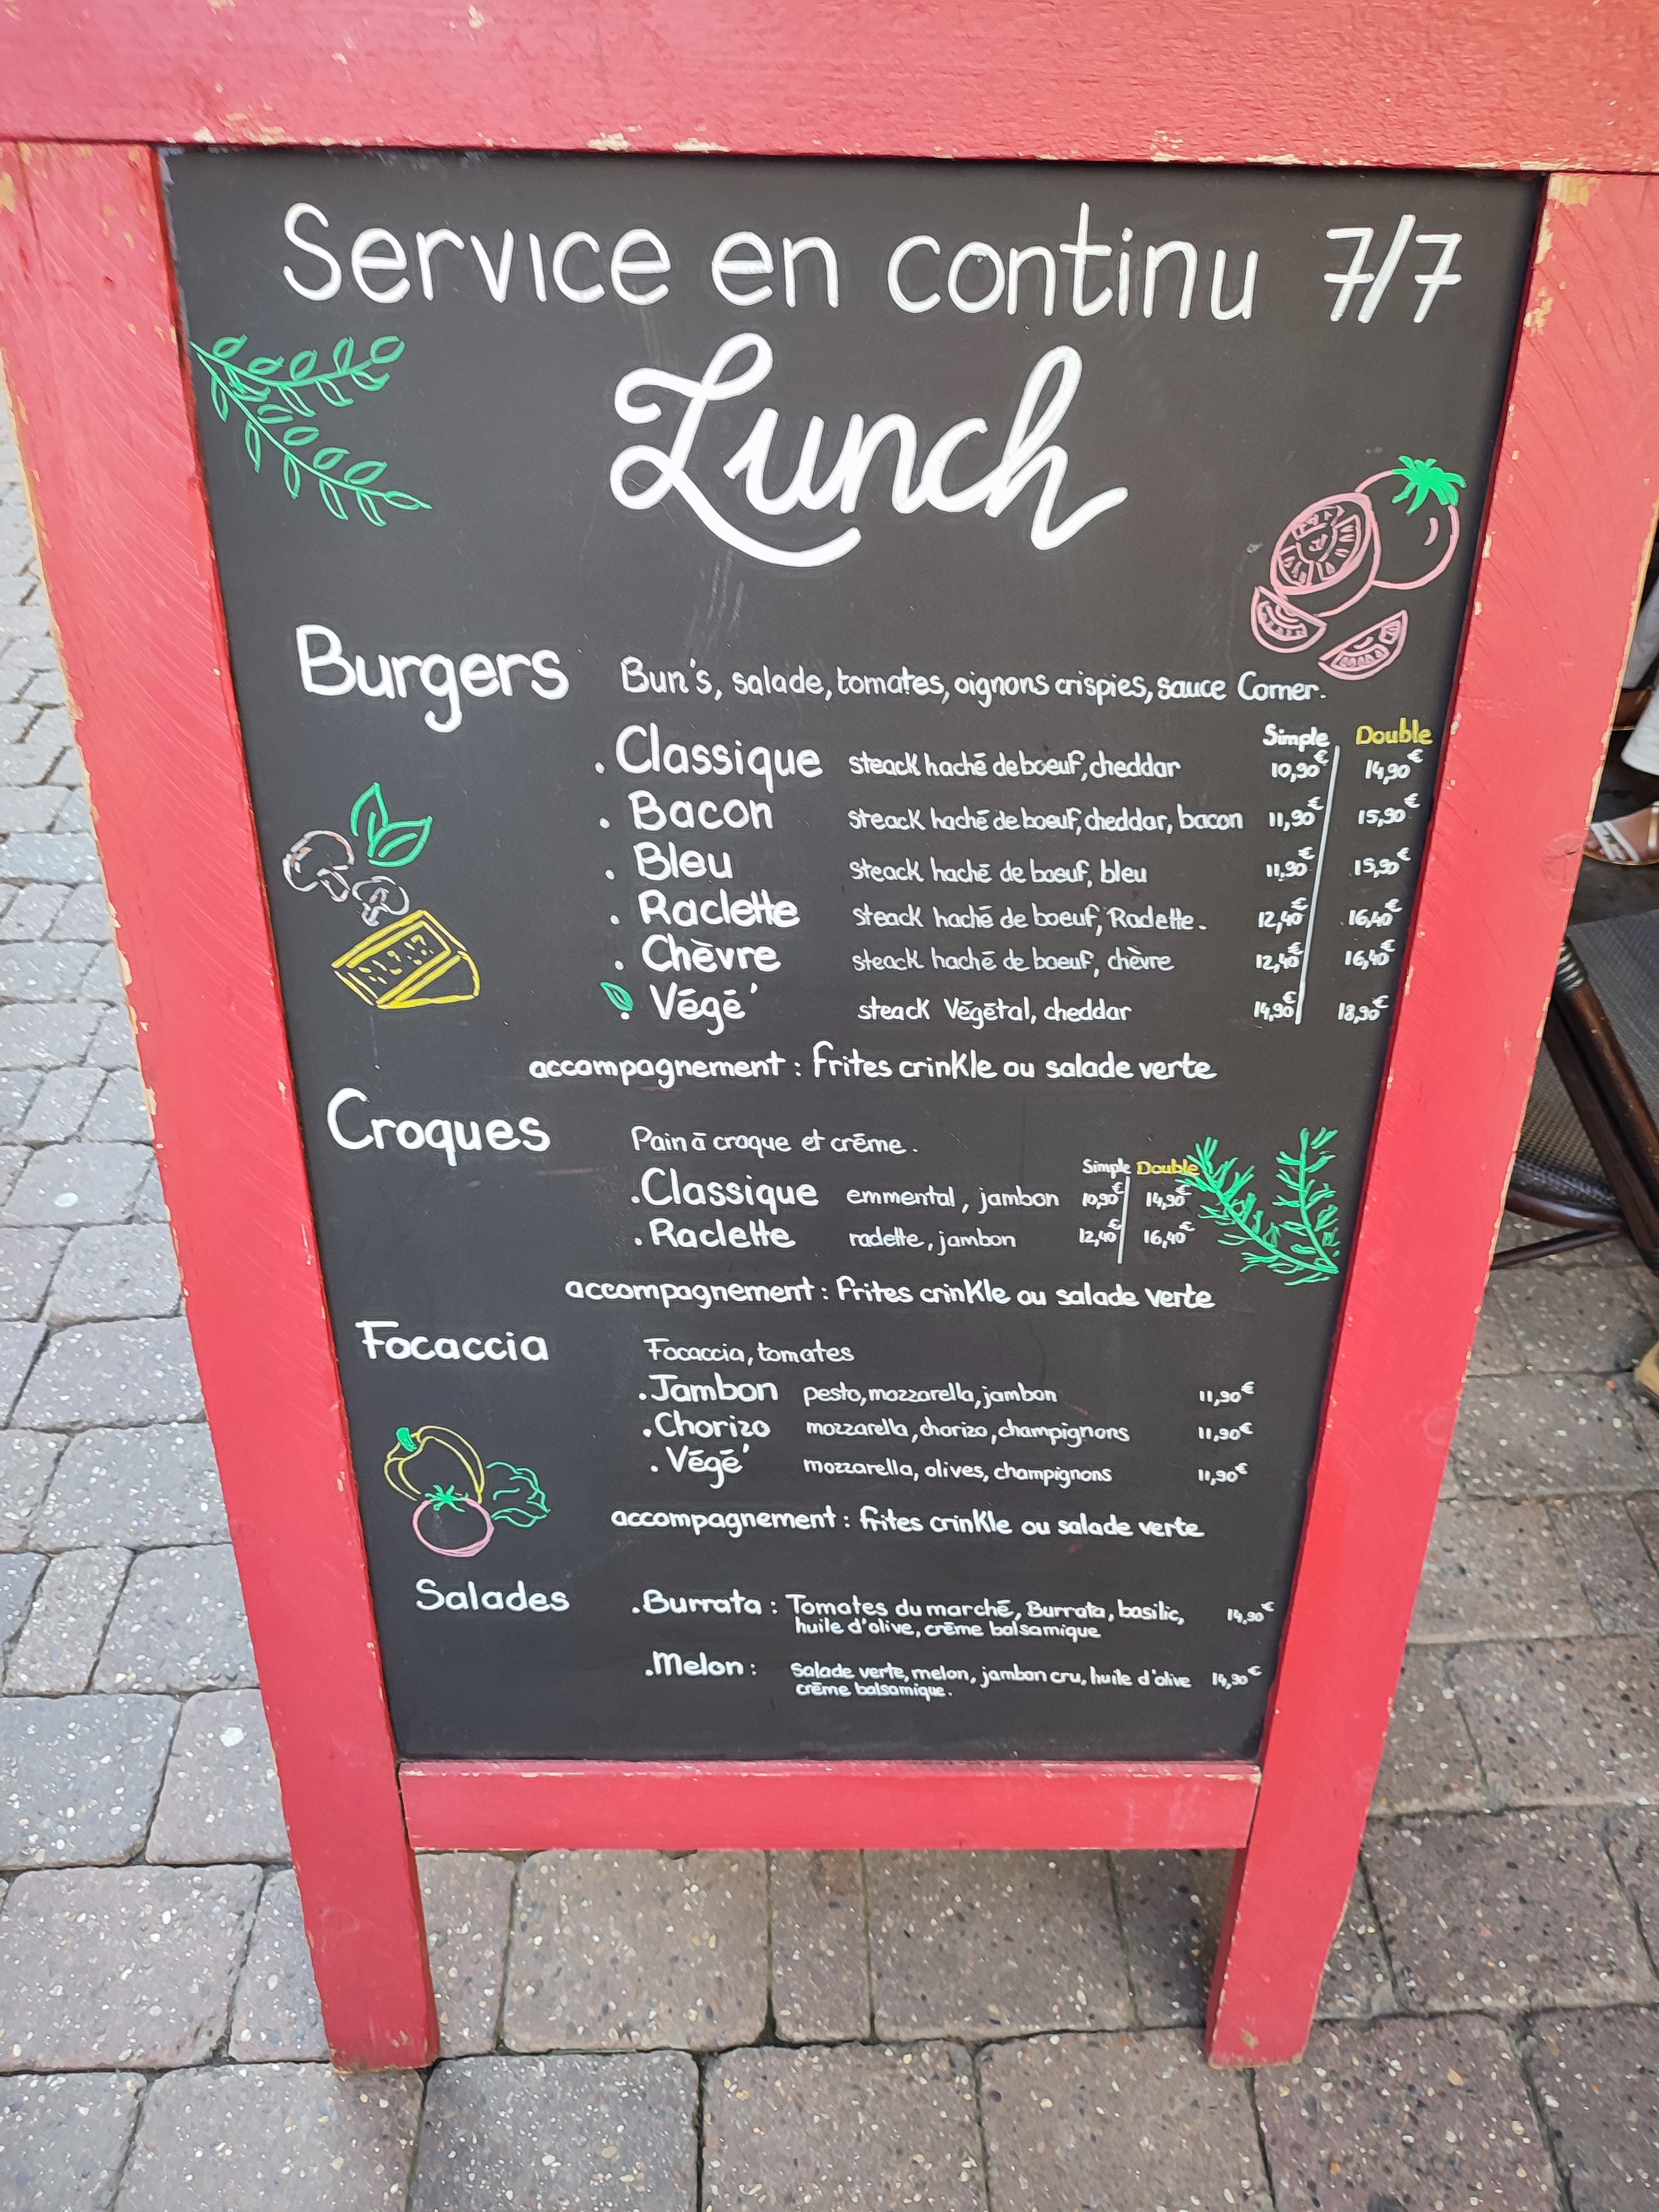 Service en continu 7/7
Lunch
Burgers Bun's, salade, tomates, oignons crispies, sauce Corner.
Simple Double
. Classique steack haché de boeuf, cheddar 10,90€ 14,90€
. Bacon steack haché de boeuf, cheddar, bacon 11,90€ 15,90€
. Bleu steack haché de boeuf, bleu 11,90€ 15,90€
. Raclette steack haché de boeuf, Raclette. 12,40€ 16,40€
. Chèvre steack haché de boeuf, chèvre 12,40€ 16,40€
. Végé' steack Végétal, cheddar 14,90€ 18,90€
accompagnement : frites crinkle ou salade verte
Croques Pain à croque et crème.
Simple Double
. Classique emmental, jambon 10,90€ 14,90€
. Raclette raclette, jambon 12,40€ 16,40€
accompagnement : frites crinkle ou salade verte
Focaccia Focaccia, tomates
. Jambon pesto, mozzarella, jambon 11,90€
. Chorizo mozzarella, chorizo, champignons 11,90€
. Végé' mozzarella, olives, champignons 11,90€
accompagnement : frites crinkle ou salade verte
Salades . Burrata : Tomates du marché, Burrata, basilic, 14,90€
huile d'olive, crème balsamique
. Melon : Salade verte, melon, jambon cru, huile d'olive 14,90€
crème balsamique.